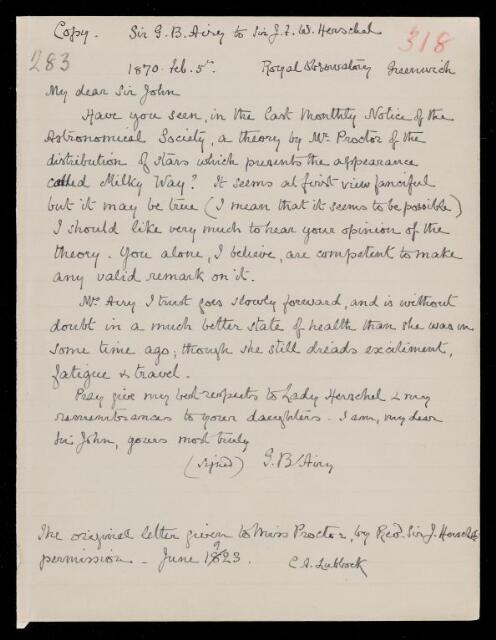 Copy. Sir G. B. Airy to Sir J. F. W. Herschel
318
283
1870. Feb. 5th. Royal Observatory Greenwich
My dear Sir John
Have you seen, in the last Monthly Notice of the
Astronomical Society, a theory by Mr Proctor of the
distribution of stars which presents the appearance
called Milky Way? It seems at first view fanciful
but it may be true (I mean that it seems to be possible)
I should like very much to hear your opinion of the
theory. You alone, I believe, are competent to make
any valid remark on it.
Mrs Airy I trust goes slowly forward, and is without
doubt in a much better state of health than she was in
some time ago; though she still dreads excitement,
fatigue & travel.
Pray give my best respects to Lady Herschel & my
remembrances to your daughters - I am, my dear
Sir John, yours most truly
(signed) G. B. Airy
The original letter given to Miss Proctor, by Revd. Sir J. Herschel's
permission - June 1923. C. A. Lubbock